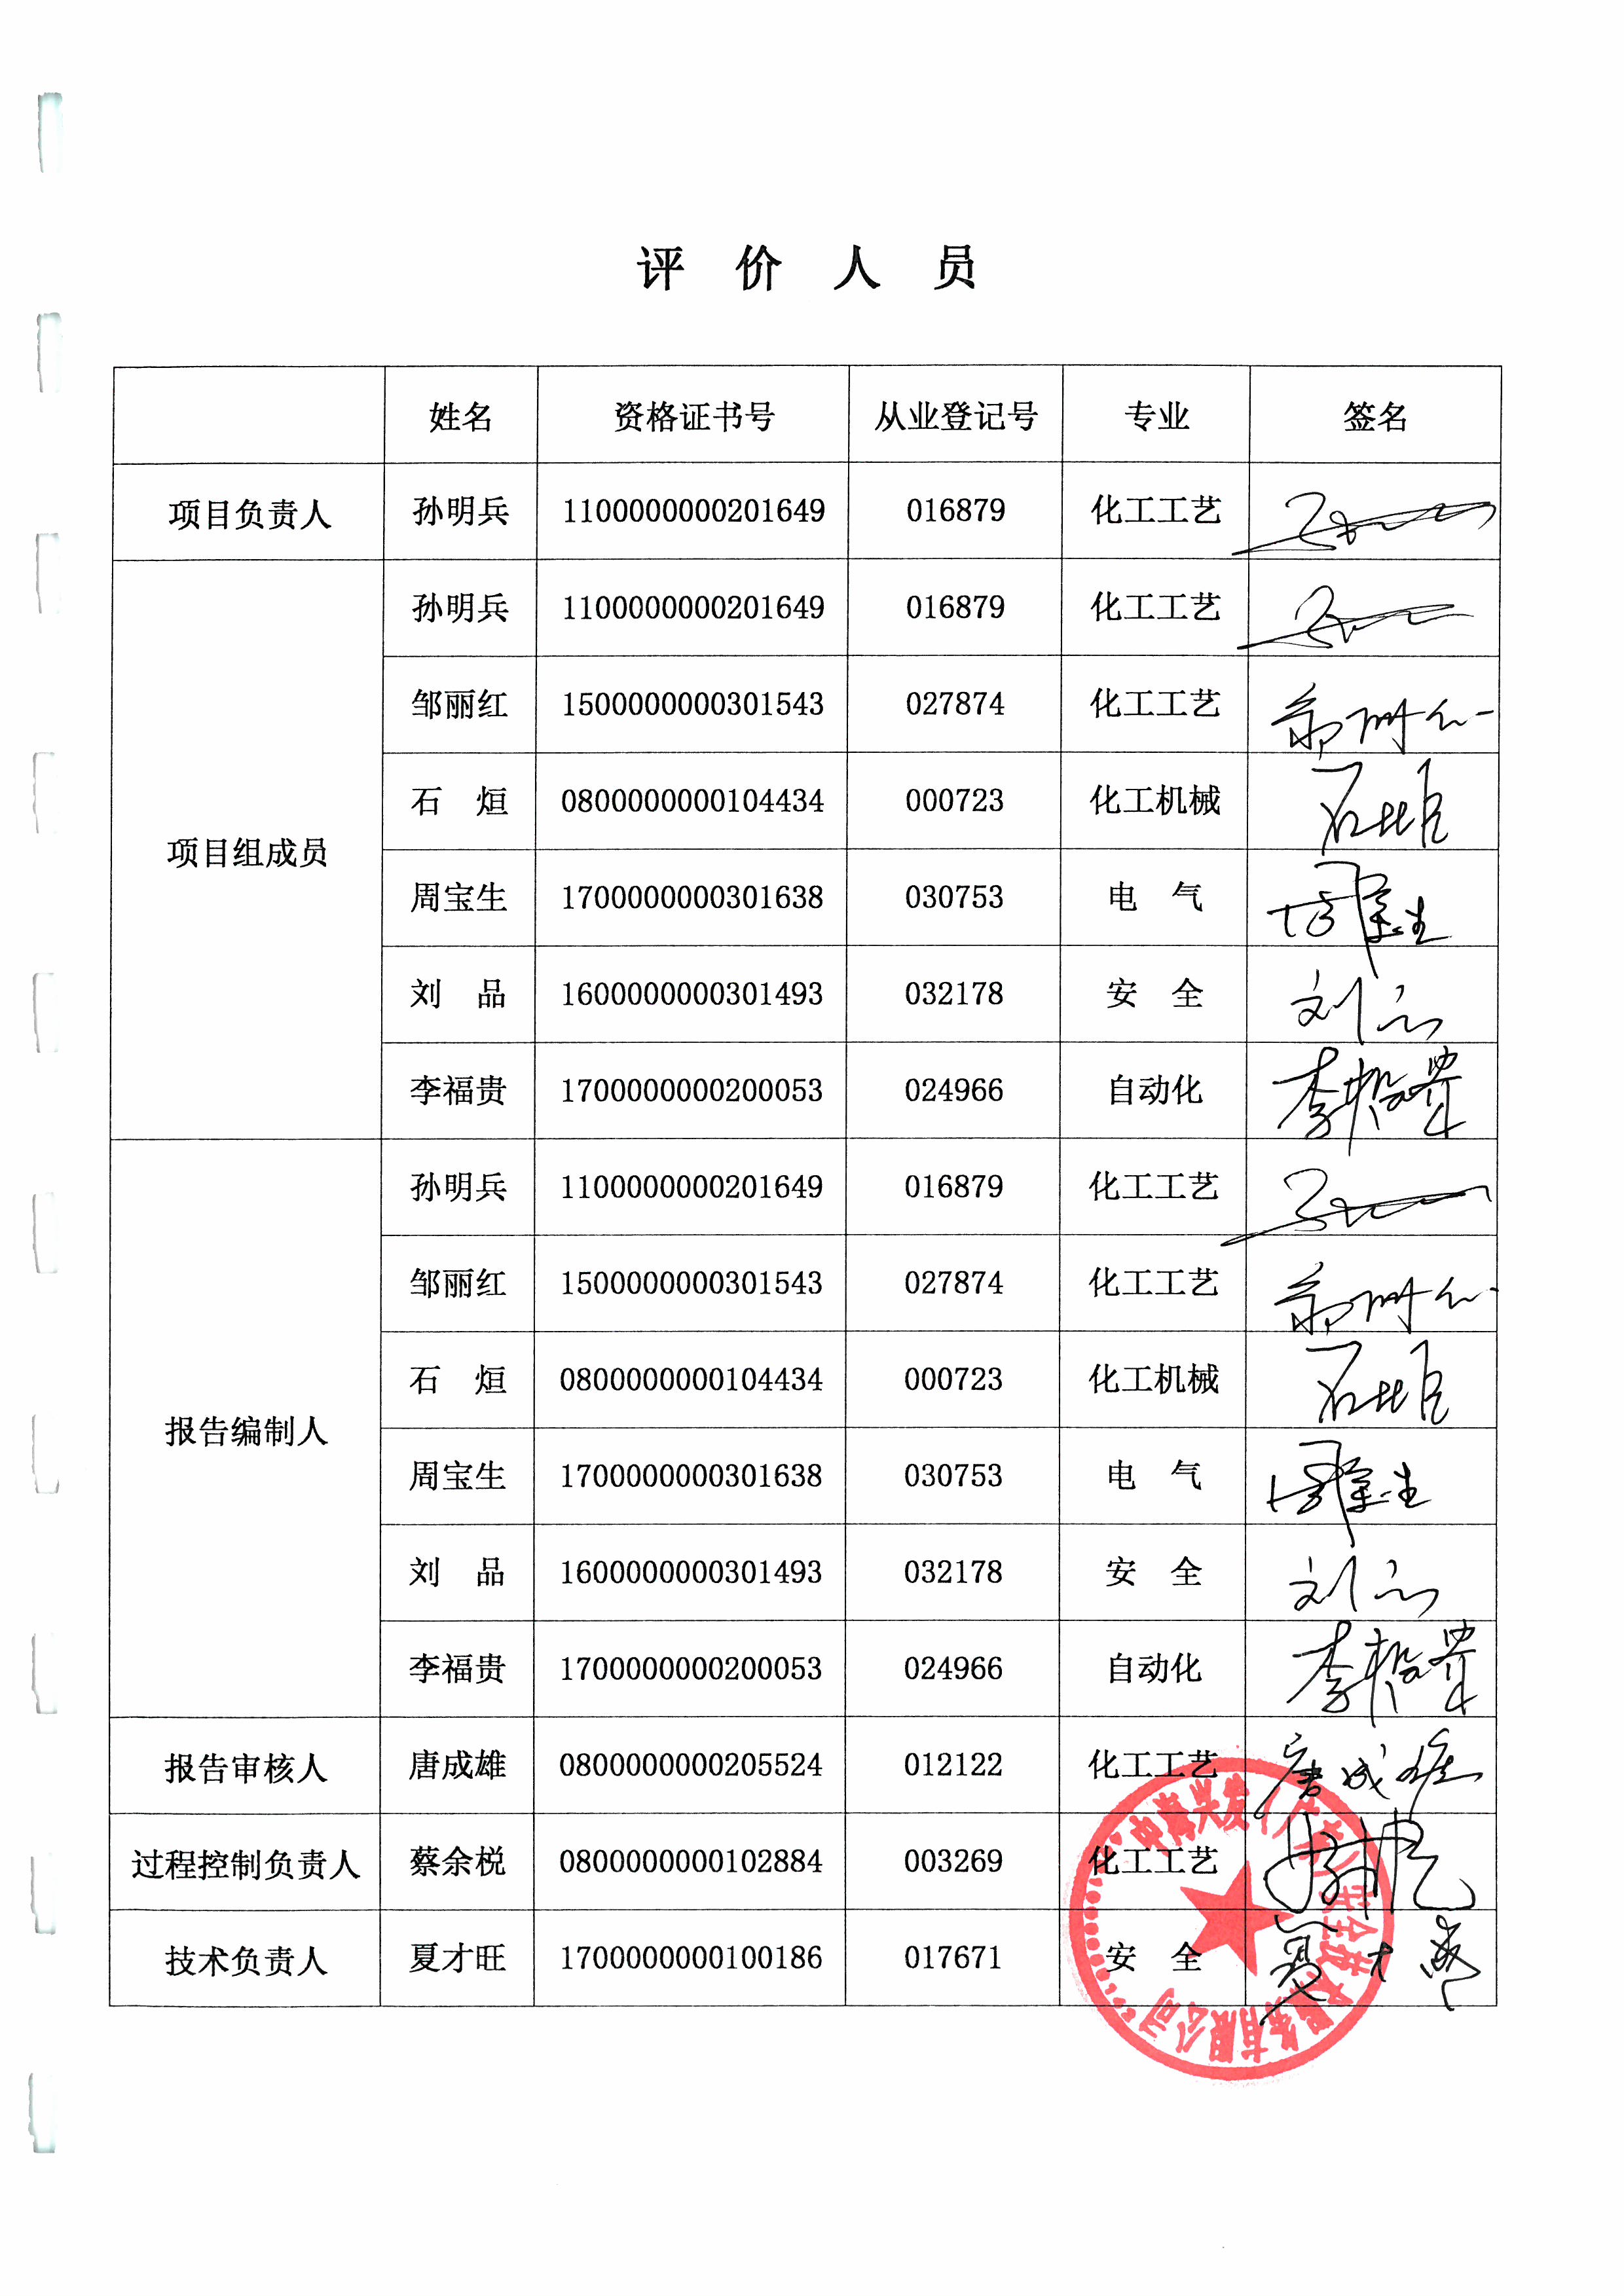 评 价 人 员
姓名 资格证书号 从业登记号 专业 签名
项目负责人 孙明兵 1100000000201649 016879 化工工艺
项目组成员 孙明兵 1100000000201649 016879 化工工艺
邹丽红 1500000000301543 027874 化工工艺
石 烜 0800000000104434 000723 化工机械
周宝生 1700000000301638 030753 电 气
刘 品 1600000000301493 032178 安 全 刘品
李福贵 1700000000200053 024966 自动化 李福贵
报告编制人 孙明兵 1100000000201649 016879 化工工艺
邹丽红 1500000000301543 027874 化工工艺
石 烜 0800000000104434 000723 化工机械
周宝生 1700000000301638 030753 电 气
刘 品 1600000000301493 032178 安 全 刘品
李福贵 1700000000200053 024966 自动化 李福贵
报告审核人 唐成雄 0800000000205524 012122 化工工艺 唐成雄
过程控制负责人 蔡余棁 0800000000102884 003269 化工工艺
技术负责人 夏才旺 1700000000100186 017671 安 全
安全技术服务有限公司